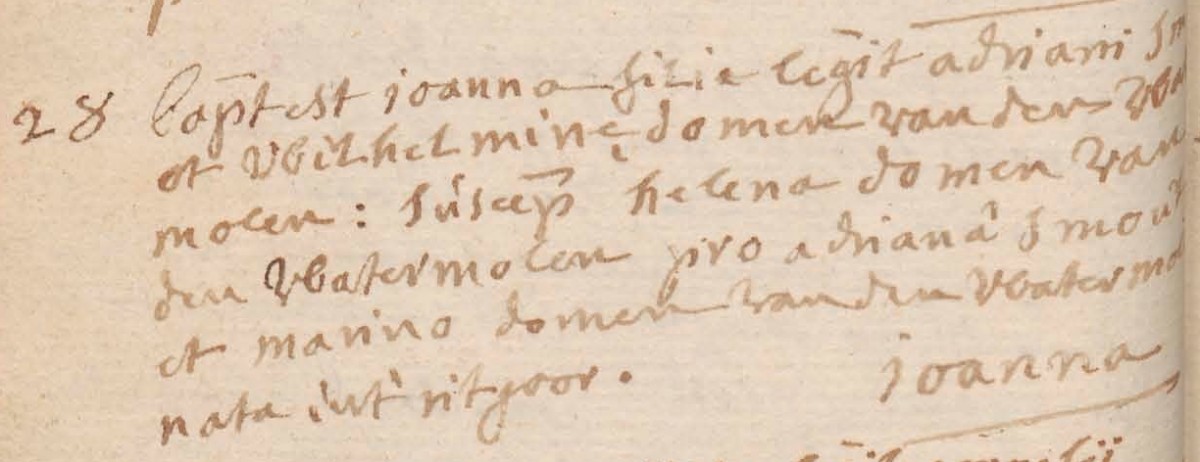 28 bapt est joanna filia legit adriani Sm
et Wilhelmine domen van den Wa
molen : suscep helena domen van
den Watermolen pro adrianâ Smou
et marino domen van den Watermo
nata int ritgoor .
joanna